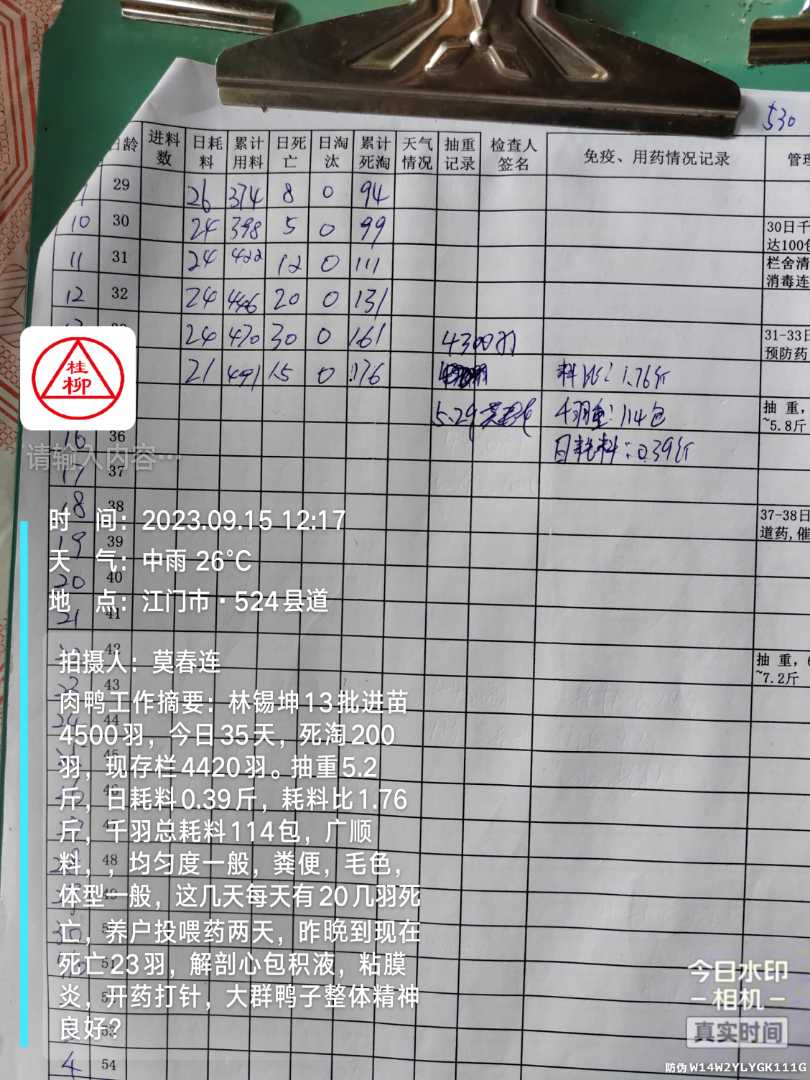 530
日龄 进料数 日耗料 累计用料 日死亡 日淘汰 累计死淘 天气情况 抽重记录 检查人签名 免疫、用药情况记录 管理
29 26 374 8 0 94
10 30 24 398 5 0 99
30日千
达100包
11 31 24 422 12 0 111
栏舍清
消毒连
12 32 24 446 20 0 131
24 470 30 0 161 4300羽
31-33日
预防药
21 491 15 0 176 料比:1.76斤
5.29 千羽重:114包
抽 重,
~5.8斤
16 36 日耗料:0.39斤
17 37
18 38
37-38日
道药,催
19 39
20 40
21 41
42
抽 重,
~7.2斤
43
44
48
4 54
桂
柳
请输入内容…
时 间:2023.09.15 12:17
天 气:中雨 26°C
地 点:江门市·524县道
拍摄人:莫春连
肉鸭工作摘要:林锡坤13批进苗
4500羽,今日35天,死淘200
羽,现存栏4420羽。抽重5.2
斤,日耗料0.39斤,耗料比1.76
斤,千羽总耗料114包,广顺
料,,均匀度一般,粪便,毛色,
体型一般,这几天每天有20几羽死
亡,养户投喂药两天,昨晚到现在
死亡23羽,解剖心包积液,粘膜
炎,开药打针,大群鸭子整体精神
良好?
今日水印
相机
真实时间
防伪W14W2YLYGK111G